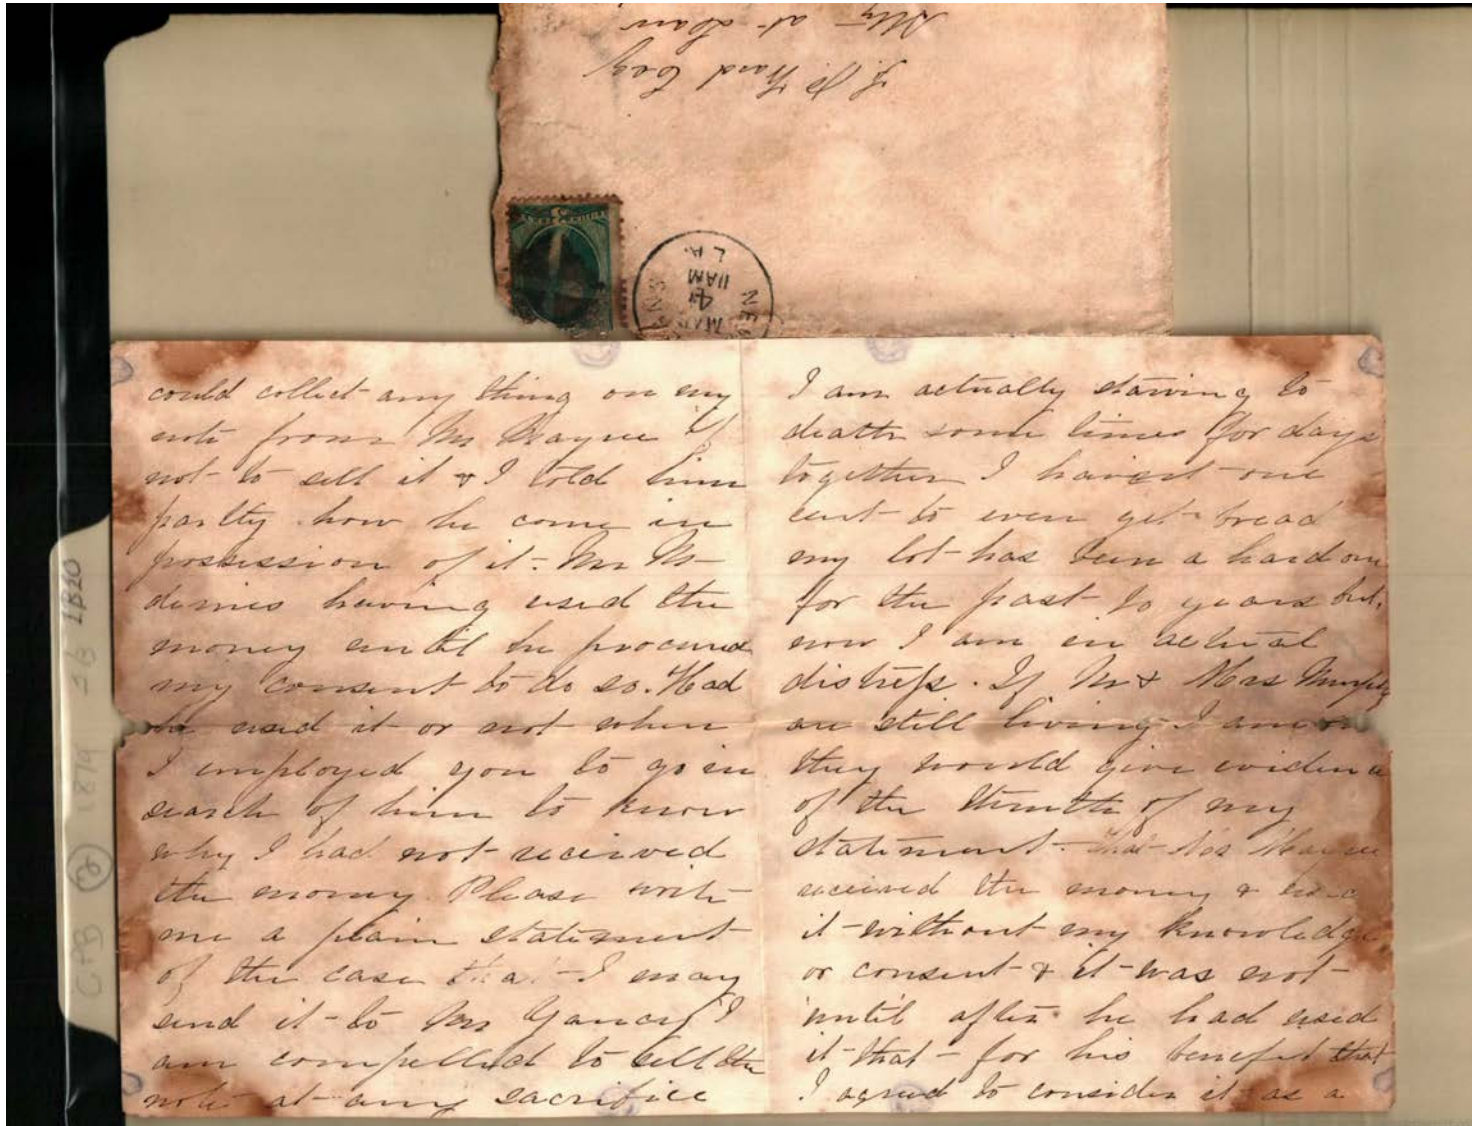 Atty at Law
Esq
NE
NS
MAR
4
11AM
LA.
could collect any thing on my
note from Mr Mayne if
not to sell it & I told him
partly how he come in
possession of it. Mr M
denies having used the
money until he procured
my consent to do so. Had
he used it or not when
I employed you to go in
search of him to know
why I had not received
the money. Please write
me a plain statement
of the case that I may
send it to Mr Yancy I
am compelled to sell the
note at any sacrifice
I am actually starving to
death some times for days
together I havent one
cent to even get bread
my lot has been a hard one
for the past 10 years but
now I am in actual
distress. If Mr & Mrs
are still living I am
they would give evidence
of the truth of my
statement that Mr Mayne
received the money & used
it without my knowledge
or consent & it was not
until after he had used
it that for his benefit that
I agreed to consider it as a
CPB 1879 JB LB20